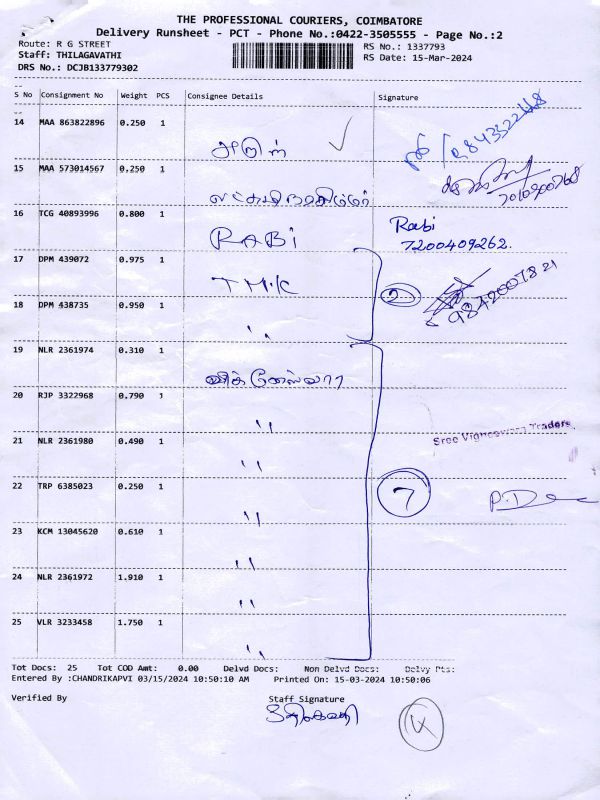 THE PROFESSIONAL COURIERS, COIMBATORE
Delivery Runsheet - PCT - Phone No.:0422-3505555 - Page No.:2
Route: R G STREET
RS No.: 1337793
Staff: THILAGAVATHI
RS Date: 15-Mar-2024
DRS No.: DCJB133779302
S No Consignment No Weight PCS Consignee Details Signature
14 MAA 863822896 0.250 1
அருள்
15 MAA 573014567 0.250 1
16 TCG 40893996 0.800 1
RABi
Rabi
7200409262.
17 DPM 439072 0.975 1
TMK
2
18 DPM 438735 0.950 1
"
9842007821
19 NLR 2361974 0.310 1
விக்னேஸ்வரா
20 RJP 3322968 0.790 1
"
Sree Vigneswara Traders
21 NLR 2361980 0.490 1
"
22 TRP 6385023 0.250 1
"
7
23 KCM 13045620 0.610 1
"
24 NLR 2361972 1.910 1
"
25 VLR 3233458 1.750 1
"
Tot Docs: 25 Tot COD Amt: 0.00 Delvd Docs: Non Delvd Docs: Delvy Pts:
Entered By :CHANDRIKAPVI 03/15/2024 10:50:10 AM Printed On: 15-03-2024 10:50:06
Verified By
Staff Signature
4